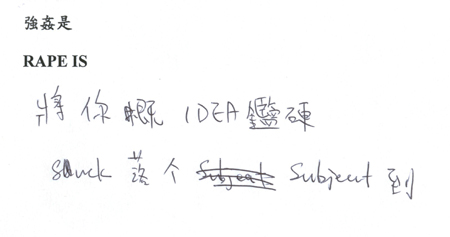 強姦是
RAPE IS
將你嘅 IDEA 鑑硬
suck 落个 Subject 到